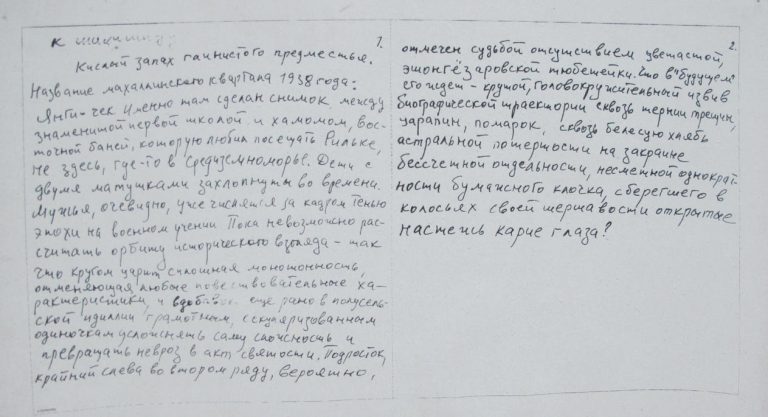 к
1.
Кислый запах глинистого предместья.
Название махаллинского квартала 1938 года:
Янги-чек Именно там сделан снимок между
знаменитой первой школой и хамомом, вос-
точной баней, которую любил посещать Рильке,
не здесь, где-то в Средиземноморье. Дети с
двумя матушками захлопнуты во времени.
Мужья, очевидно, уже числятся за кадром тенью
эпохи на военном учении Пока невозможно рас-
считать орбиту исторического взгляда – так
что кругом царит сплошная монотонность,
отменяющая любые повествовательные ха-
рактеристики, и еще рано в полусель-
ской идиллии грамотным, секуляризованным
одиночкам усложнять саму сложность и
превращать невроз в акт святости. Подросток,
крайний слева во втором ряду, вероятно,
2.
отмечен судьбой отсутствием цветастой,
эшонгёзаровской тюбетейки. Что в "будущем"
его ждет – крутой, головокружительный извив
биографической траектории сквозь тернии трещин,
царапин, помарок, сквозь белесую хлябь
астральной потертости на закраине
бессчетной отдельности, несметной однократ-
ности бумажного клочка, сберегшего в
колосьях своей шершавости открытые
настежь карие глаза?